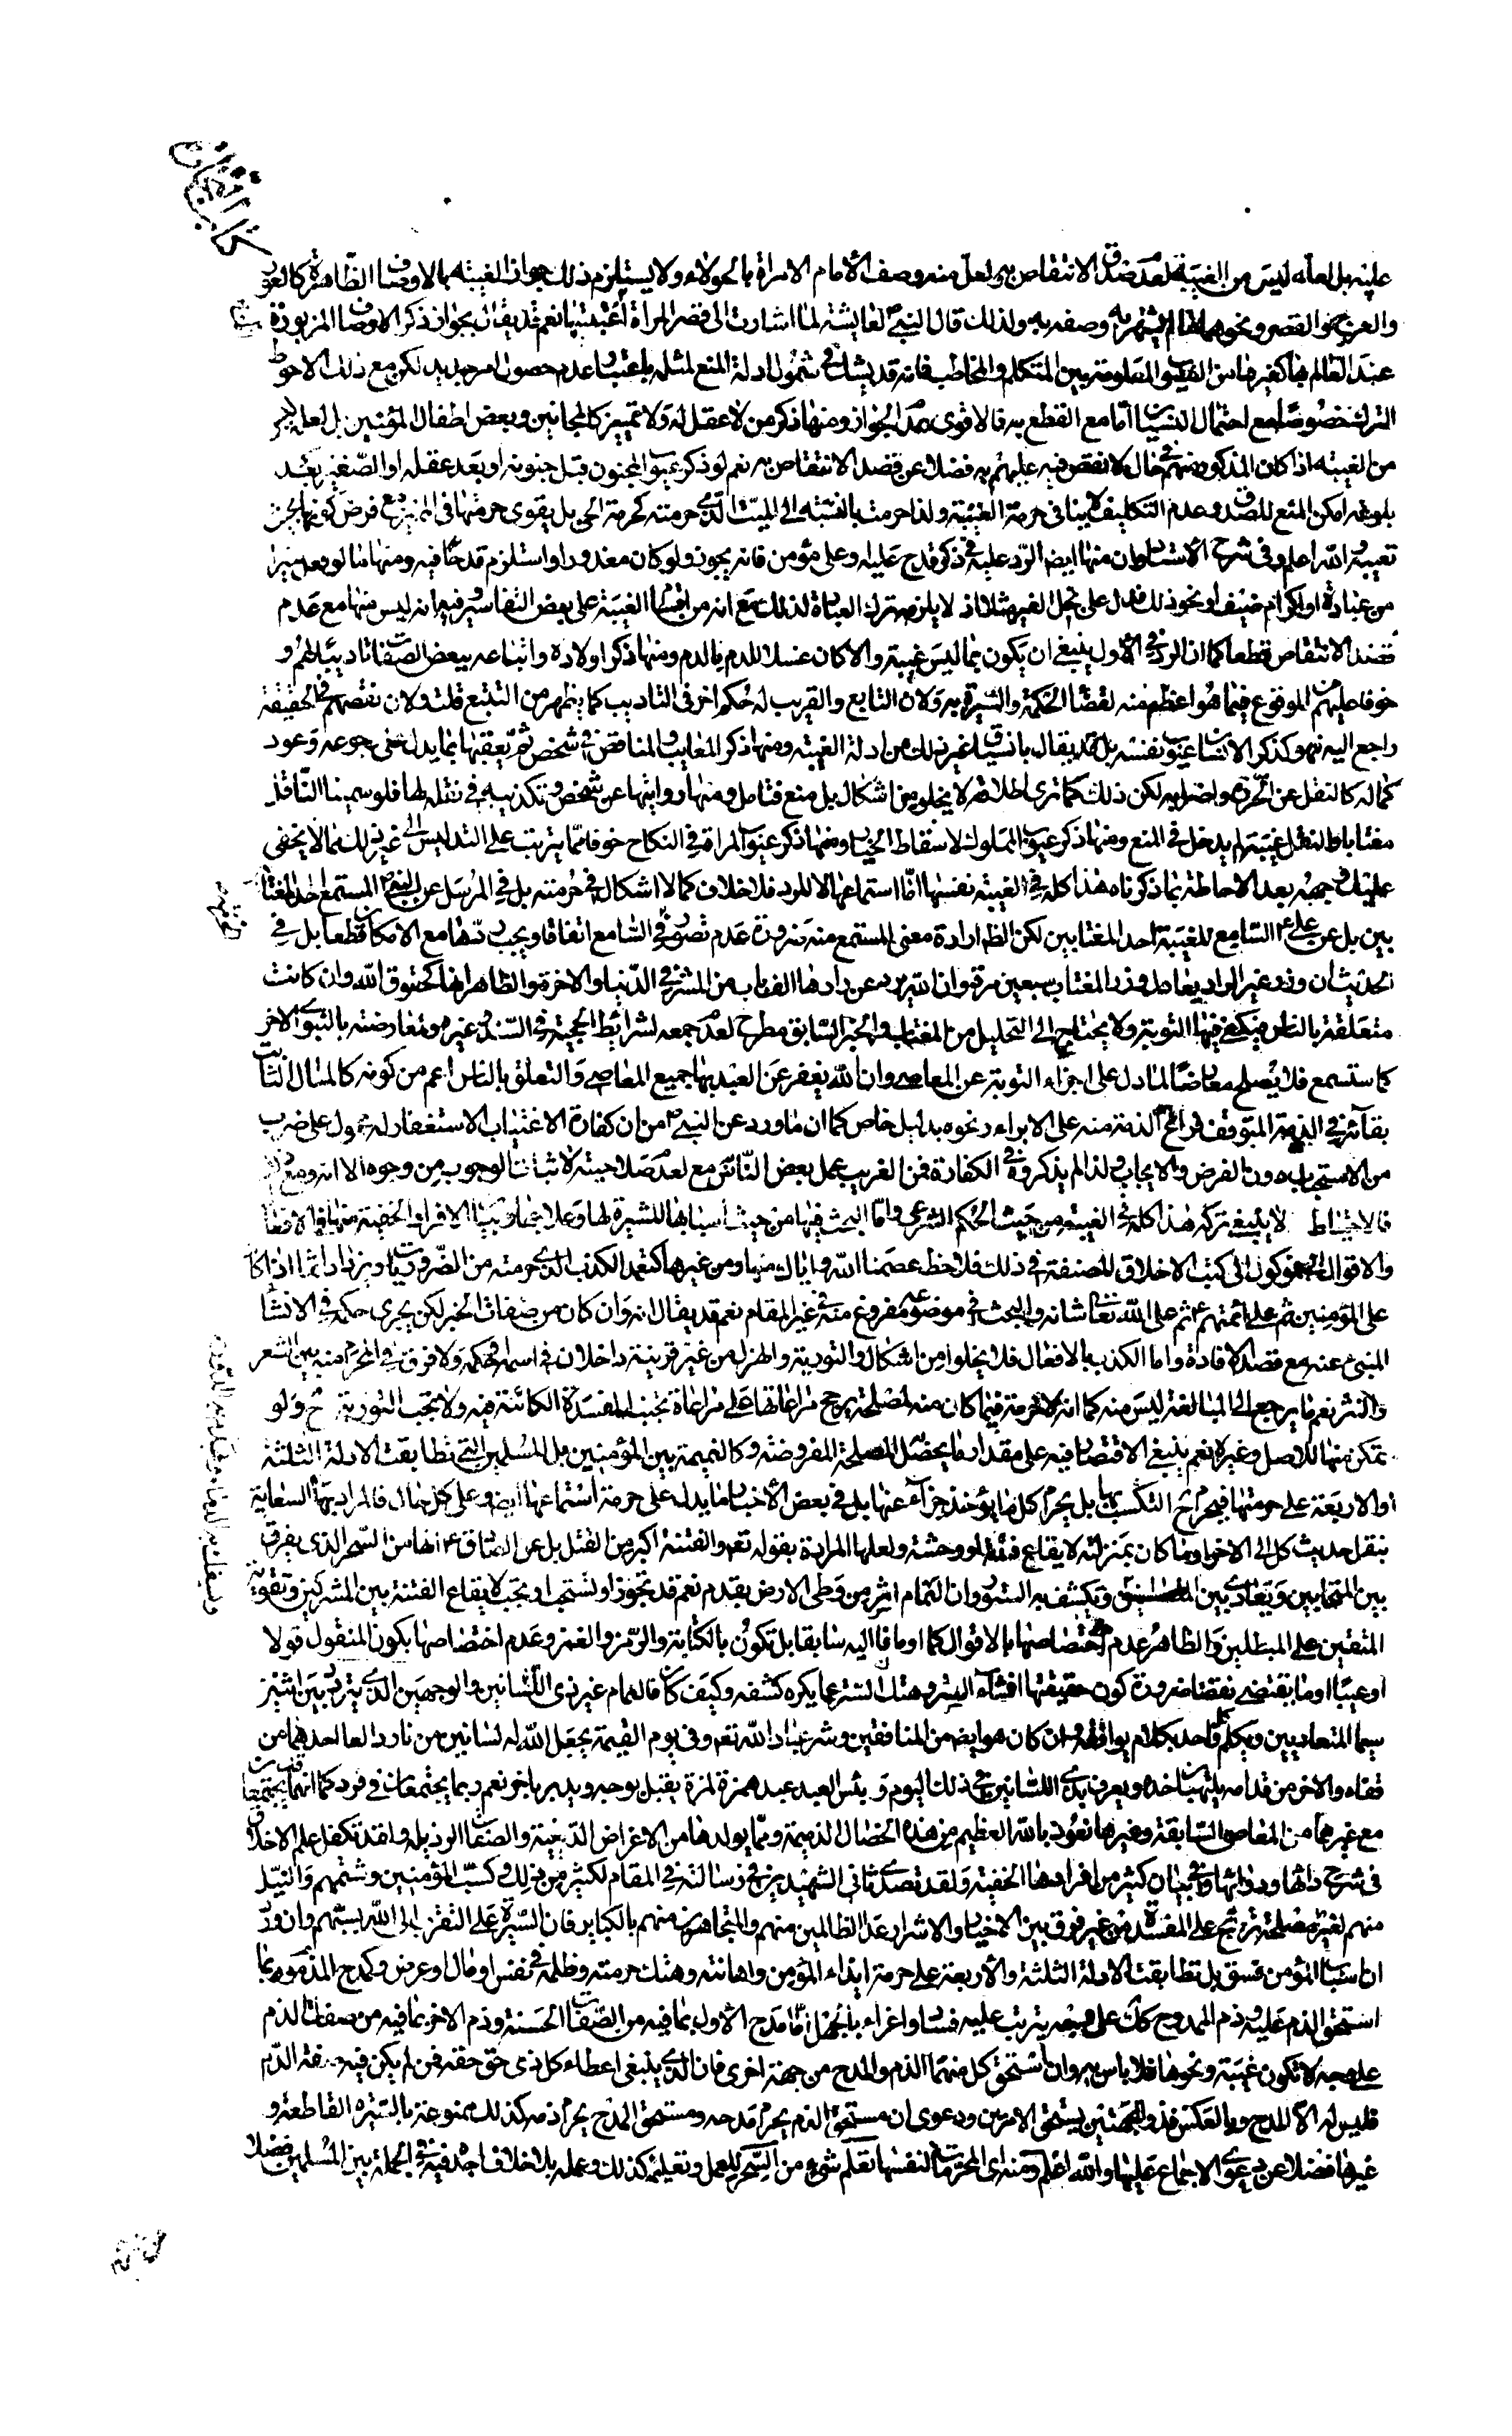 كتاب التجارة
عليه بل لعله ليس من الغيبة لعدم صدق الانتقاص به ولعل منه وصف الامام الامراة بالحولاء ولا يستلزم ذلك جواز الغيبة بالاوصاف الظاهرة كالعور
والعرج والقصر ونحوها اذا لم يشتهر به وصفه به ولذلك قال النبي لعايشة لما اشارت الى قصر المراة اغتبتيها نعم قد يقال بجواز ذكر الاوصاف المزبورة
عند العالم بها كغيرها من العيوب المعلومة بين المتكلم والمخاطب فانه قد يشك في شمول ادلة المنع لمثله باعتبار عدم حصول امر جديد لكن مع ذلك الاحوط
الترك خصوصا مع احتمال النسيان اما مع القطع به فالاقوى عدم الجواز ومنها ذكر من لا عقل له ولا تمييز كالمجانين وبعض اطفال المؤمنين بل لعله ليس
من الغيبة اذا كان المذكور منهم في حال لا نقص فيه عليهم به فضلا عن قصد الانتقاص به نعم لو ذكر عيوب المجنون قبل جنونه او بعد عقله او الصغير بعد
بلوغه امكن المنع للصدق وعدم التكليف لا ينافي حرمة الغيبة ولذا حرمت بالنسبة الى الميت الذي حرمته كحرمة الحي بل يقوى حرمتها في المميز مع فرض كونها
والله اعلم وفي شرح الاستاد ان منها ايضا الرد عليه في ذكر قدح عليه وعلى مؤمن فانه يجوز ولو كان معذورا واستلزم قدحا فيه ومنها ما لو
من عبادة او اكرام ضيف او نحو ذلك فدل على بخل الغير مثلا اذ لا يلزمه ترك العبادة لذلك مع انه من الغيبة على بعض التفاسير وفيه انه ليس منها مع عدم
قصد الانتقاص قطعا كما ان الرد في الاول ينبغي ان يكون بما ليس غيبة والا كان غسلا للدم بالدم ومنها ذكر اولاده واتباعه ببعض الصفات تاديبا لهم و
خوفا عليهم من الوقوع فيما هو اعظم منه لقضاء الحكمة والسيرة به ولان التابع والقريب له حكم اخر في التاديب كما يظهر من التتبع قلت ولان نقصهم في الحقيقة
راجع اليه فهو كذكر الانسان عيوب نفسه بل قد يقال بانسياق غير ذلك من ادلة الغيبة ومنها ذكر المعايب والمناقص في شخص ثم يعقبها بما يدل على رجوعه وعود
كماله كالنقل عن الحر واضرابه لكن ذلك كما ترى اطلاقه لا يخلو من اشكال بل منع فتامل ومنها روايتها عن شخص وتكذيبه في نقله لها فلو سمينا الناقل
مغتابا والنقل غيبة لم يدخل في المنع ومنها ذكر عيوب المملوك لاسقاط الخيار ومنها ذكر عيوب المراة في النكاح خوفا مما يترتب على التدليس الى غير ذلك مما لا يخفى
عليك وجهه بعد الاحاطة بما ذكرناه هذا كله في الغيبة نفسها اما استماعها لا للرد فلا خلاف كما لا اشكال في حرمته بل في المرسل عن النبي المستمع احد المغتا
بين بل عن علي السامع للغيبة احد المغتابين لكن الظاهر ارادة معنى المستمع منه ضرورة عدم تصوره في السامع اتفاقا ويجب ردها مع الامكان قطعا بل في
الحديث ان وزر غير الراد يعادل وزر المغتاب سبعين مرة وان الله يرد عن رادها الف باب من الشر في الدنيا والاخرة والظاهر انها كحقوق الله وان كانت
متعلقة بالناس فيكفي فيها التوبة ولا يحتاج الى التحليل من المغتاب والخبر السابق مطرح لعدم جمعه لشرائط الحجية في السند وغيره ومعارضته بالنبوي الاخر
كما ستسمع فلا يصلح معارضا لما دل على اجزاء التوبة عن المعاصي وان الله يغفر عن العبد بها جميع المعاصي والتعلق بالناس اعم من كونه كالمال الثابت
بقائه في الذمة المتوقف فراغ الذمة منه على الابراء ونحوه بدليل خاص كما ان ما ورد عن النبي من ان كفارة الاغتياب الاستغفار له محمول على ضرب
من الاستحباب دون الفرض والايجاب ولذا لم يذكروه في الكفارة فمن الغريب عمل بعض الناس مع لعدم صلاحيته لاثبات الوجوب من وجوه الا انه ومع
فالاحتياط لا ينبغي تركه هذا كله في الغيبة من حيث الحكم الشرعي واما البحث فيها من حيث اسبابها المشيرة لها وعلاجها وبيان الافراد الخفية منها في الافعال
والاقوال فهو موكول الى كتب الاخلاق المصنفة في ذلك فلاحظ عصمنا الله واياك منها ومن غيرها كتعمد الكذب الذي حرمته من الضروريات ويزداد اثما اذا كان
على المؤمنين ثم على ائمتهم ثم على الله تعالى شانه والبحث في موضوعه مفروغ منه في غير المقام نعم قد يقال انه وان كان من صفات الخبر لكن يجري حكمه في الانشاء
المنبئ عنه مع قصد الافادة واما الكذب بالافعال فلا يخلوا من اشكال والتورية والهزل من غير قرينة داخلان في اسمه او حكمه ولا فرق في المحرم منه بين الشعر
والنثر نعم ما يرجع الى المبالغة ليس منه كما انه لا حرمة فيما كان منه لمصلحة يرجح مراعاتها على مراعاة تجنب المفسدة الكائنة فيه ولا تجب التورية ح ولو
تمكن منها للاصل وغيره نعم ينبغي الاقتصار فيه على مقدار ما يحصل المصلحة المفروضة وكالنميمة بين المؤمنين بل المسلمين التي تطابقت الادلة الثلثة
او الاربعة على حرمتها فيحرم ح التكسب بها بل يحرم كل ما يؤخذ جزاء عنها بل في بعض الاخبار ما يدل على حرمة استماعها ايضا وعلى كل حال فالمراد بها السعاية
بنقل حديث كل الى الاخر او ما كان بمنزلته لايقاع فتنة او وحشة ولعلها المرادة بقوله تعم والفتنة اكبر من القتل بل عن الصادق انها من السحر الذي يفرق
بين المتحابين ويعادي بين المتصافيين ويكشف به الستور وان النمام اشر من وطى الارض بقدم نعم قد تجوز او تستحب او تجب لايقاع الفتنة بين المشركين وتقوية
المتقين على المبطلين والظاهر عدم اختصاصها بالاقوال كما اومانا اليه سابقا بل تكون بالكتابة والرمز والغمز وعدم اختصاصها بكون المنقول قولا
او عيبا او ما يقتضي نقصا ضرورة كون حقيقتها افشاء السر وهتك الستر عما يكره كشفه وكيف كان فالنمام غير ذي اللسانين والوجهين الذي يتردد بين اثنين
سيما المتعاديين ويكلم كل واحد بكلام يوافقه وان كان هو ايضا من المنافقين وشر عباد الله تعم وفي يوم القيمة يجعل الله له لسانين من نار دالعا احدهما من
قفاه والاخر من قدامه يلتهبان خده ويعرف بذي اللسانين في ذلك اليوم وبئس العبد عبد همزة لمزة يقبل بوجه ويدبر باخر نعم ربما يجتمعان في فرد كما انهما قد يجتمعان
مع غيرهما من المعاصي السابقة وغيرها نعوذ بالله العظيم من هذه الخصال الذميمة ومما يولدها من الاغراض الدنية والصفات الرذيلة ولقد تكفل علم الاخلاق
في شرح دائها ودوائها وفي بيان كثير من افرادها الخفية ولقد تصدى ثاني الشهيدين في رسالته في المقام لكثير من ذلك وكسب المؤمنين وشتمهم والنيل
منهم لغير مصلحة ترجح على المفسدة من غير فرق بين الاخيار والاشرار عدا الظالمين منهم والمتجاهرين منهم بالكباير فان السيرة على التقرب الى الله بسبهم وان ورد
ان سباب المؤمن فسق بل تطابقت الادلة الثلثة والاربعة على حرمة ايذاء المؤمن واهانته وهتك حرمته وظلمه في نفس او مال او عرض وكمدح المذموم بما
استحق الذم عليه وذم الممدوح كك على وجه يترتب عليه فساد واغراء بالجهل اما مدح الاول بما فيه من الصفات الحسنة وذم الاخر بما فيه من صفات الذم
على وجه لا تكون غيبة ونحوها فلا باس به وان استحق كل منهما الذم والمدح من جهة اخرى فان الذي ينبغي اعطاء كل ذي حق حقه فمن لم يكن فيه صفة الذم
فليس له الا المدح وبالعكس فذو الجهتين يستحق الامرين ودعوى ان مستحق الذم يحرم مدحه ومستحق المدح يحرم ذمه كذلك ممنوعة بالسيرة القاطعة و
غيرها فضلا عن دعوى الاجماع عليها والله اعلم ومنه اي المحرمات لنفسها تعلم شيء من السحر للعمل وتعليمه كذلك وعمله بلا خلاف اجده فيه في الجملة بين المسلمين فضلا